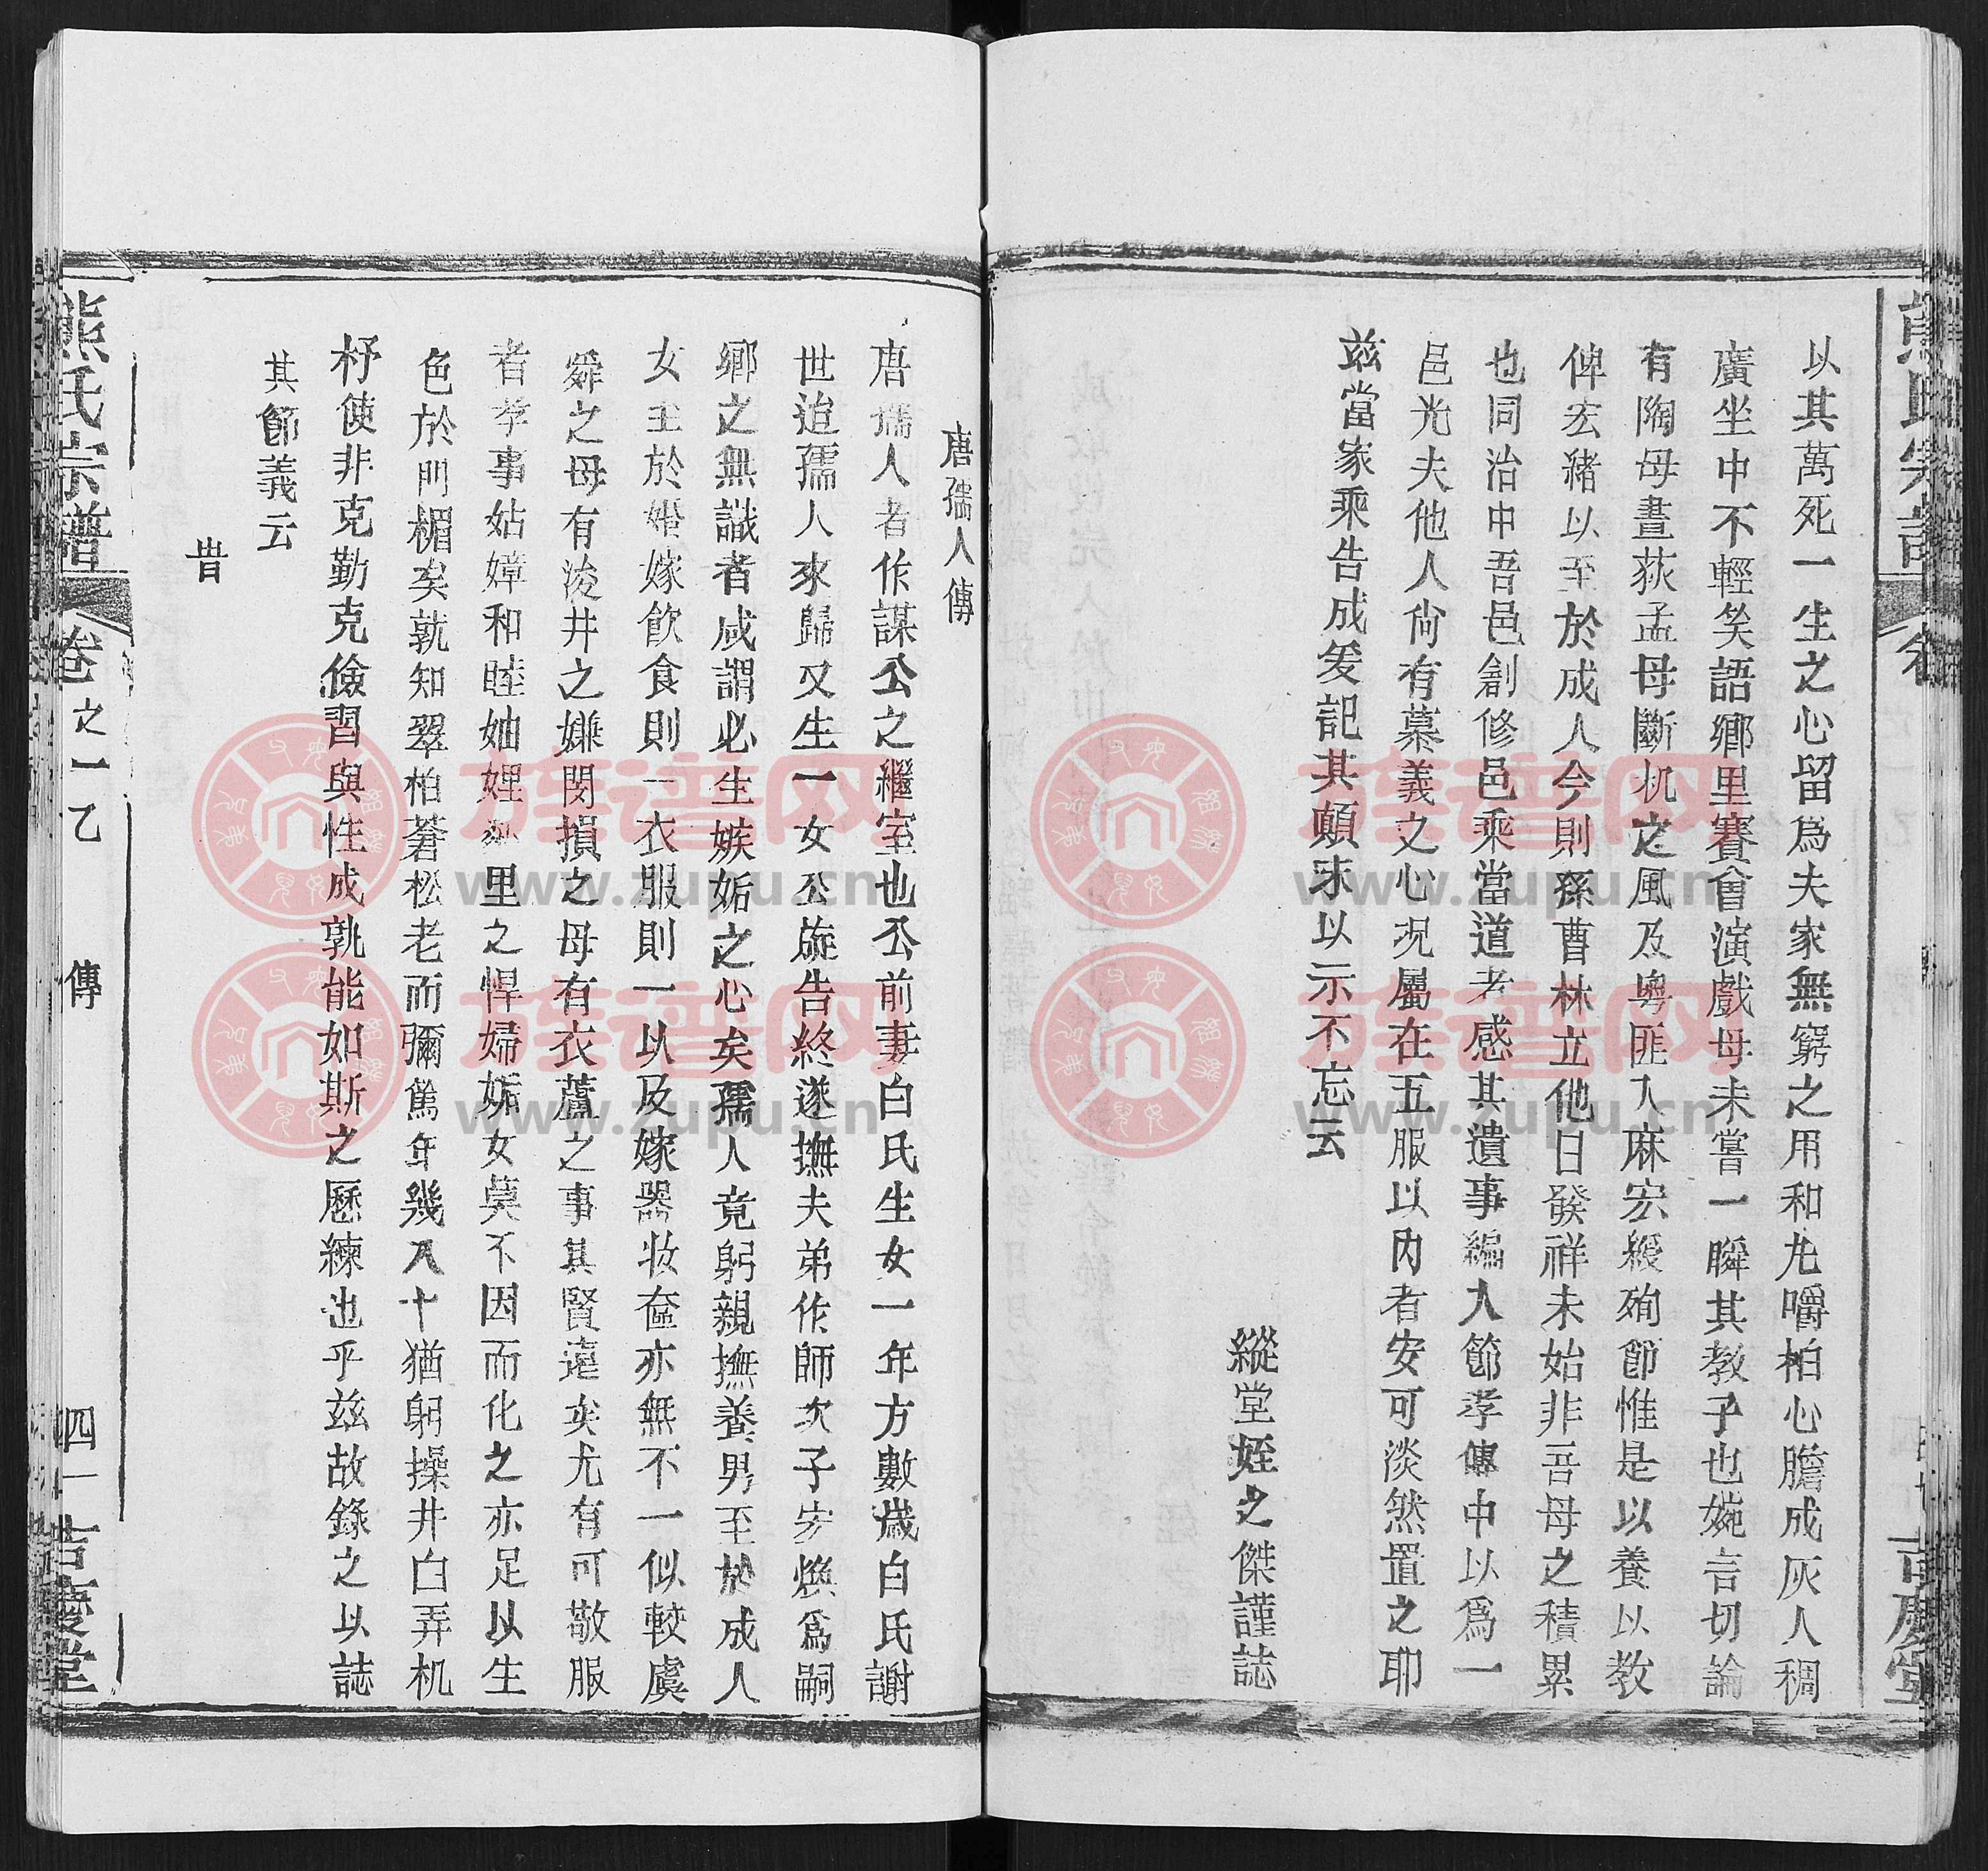 以其萬死一生之心留爲夫家無窮之用和丸嚼柏心膽成灰人稠
廣坐中不輕笑語鄉里賽會演戲母未嘗一瞬其教子也婉言切論
有陶母晝荻孟母斷机之風及粵匪入麻宏綬殉節惟是以養以教
俾宏緒以至於成人今則孫曹林立他日發祥未始非吾母之積累
也同治中吾邑創修邑乘當道者感其遺事編入節孝傳中以爲一
邑光夫他人尙有慕義之心况屬在五服以內者安可淡然置之耶
兹當家乘告成爰記其顛末以示不忘云
縱堂姪之傑謹誌
唐孺人傳
唐孺人者作謀公之繼室也公前妻白氏生女一年方數歲白氏謝
世迨孺人來歸又生一女公旋告終遂撫夫弟作師次子安煥爲嗣
鄉之無識者咸謂必生嫉妬之心矣孺人竟躬親撫養男至於成人
女至於婚嫁飮食則一衣服則一以及嫁器妝奩亦無不一似較虞
舜之母有浚井之嫌閔損之母有衣蘆之事其賢遠矣尤有可敬服
者孝事姑嫜和睦妯娌鄉里之悍婦妬女莫不因而化之亦足以生
色於門楣矣孰知翠柏蒼松老而彌篤年幾八十猶躬操井臼弄机
杼使非克勤克儉習與性成孰能如斯之歷練也乎兹故錄之以誌
其節義云
昔
熊氏宗譜 卷之一乙 傳 四一 吉慶堂
族谱网
www.zupu.cn
族谱网
www.zupu.cn
族谱网
www.zupu.cn
族谱网
www.zupu.cn